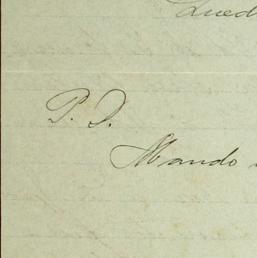 Qued
P. D.
Mando